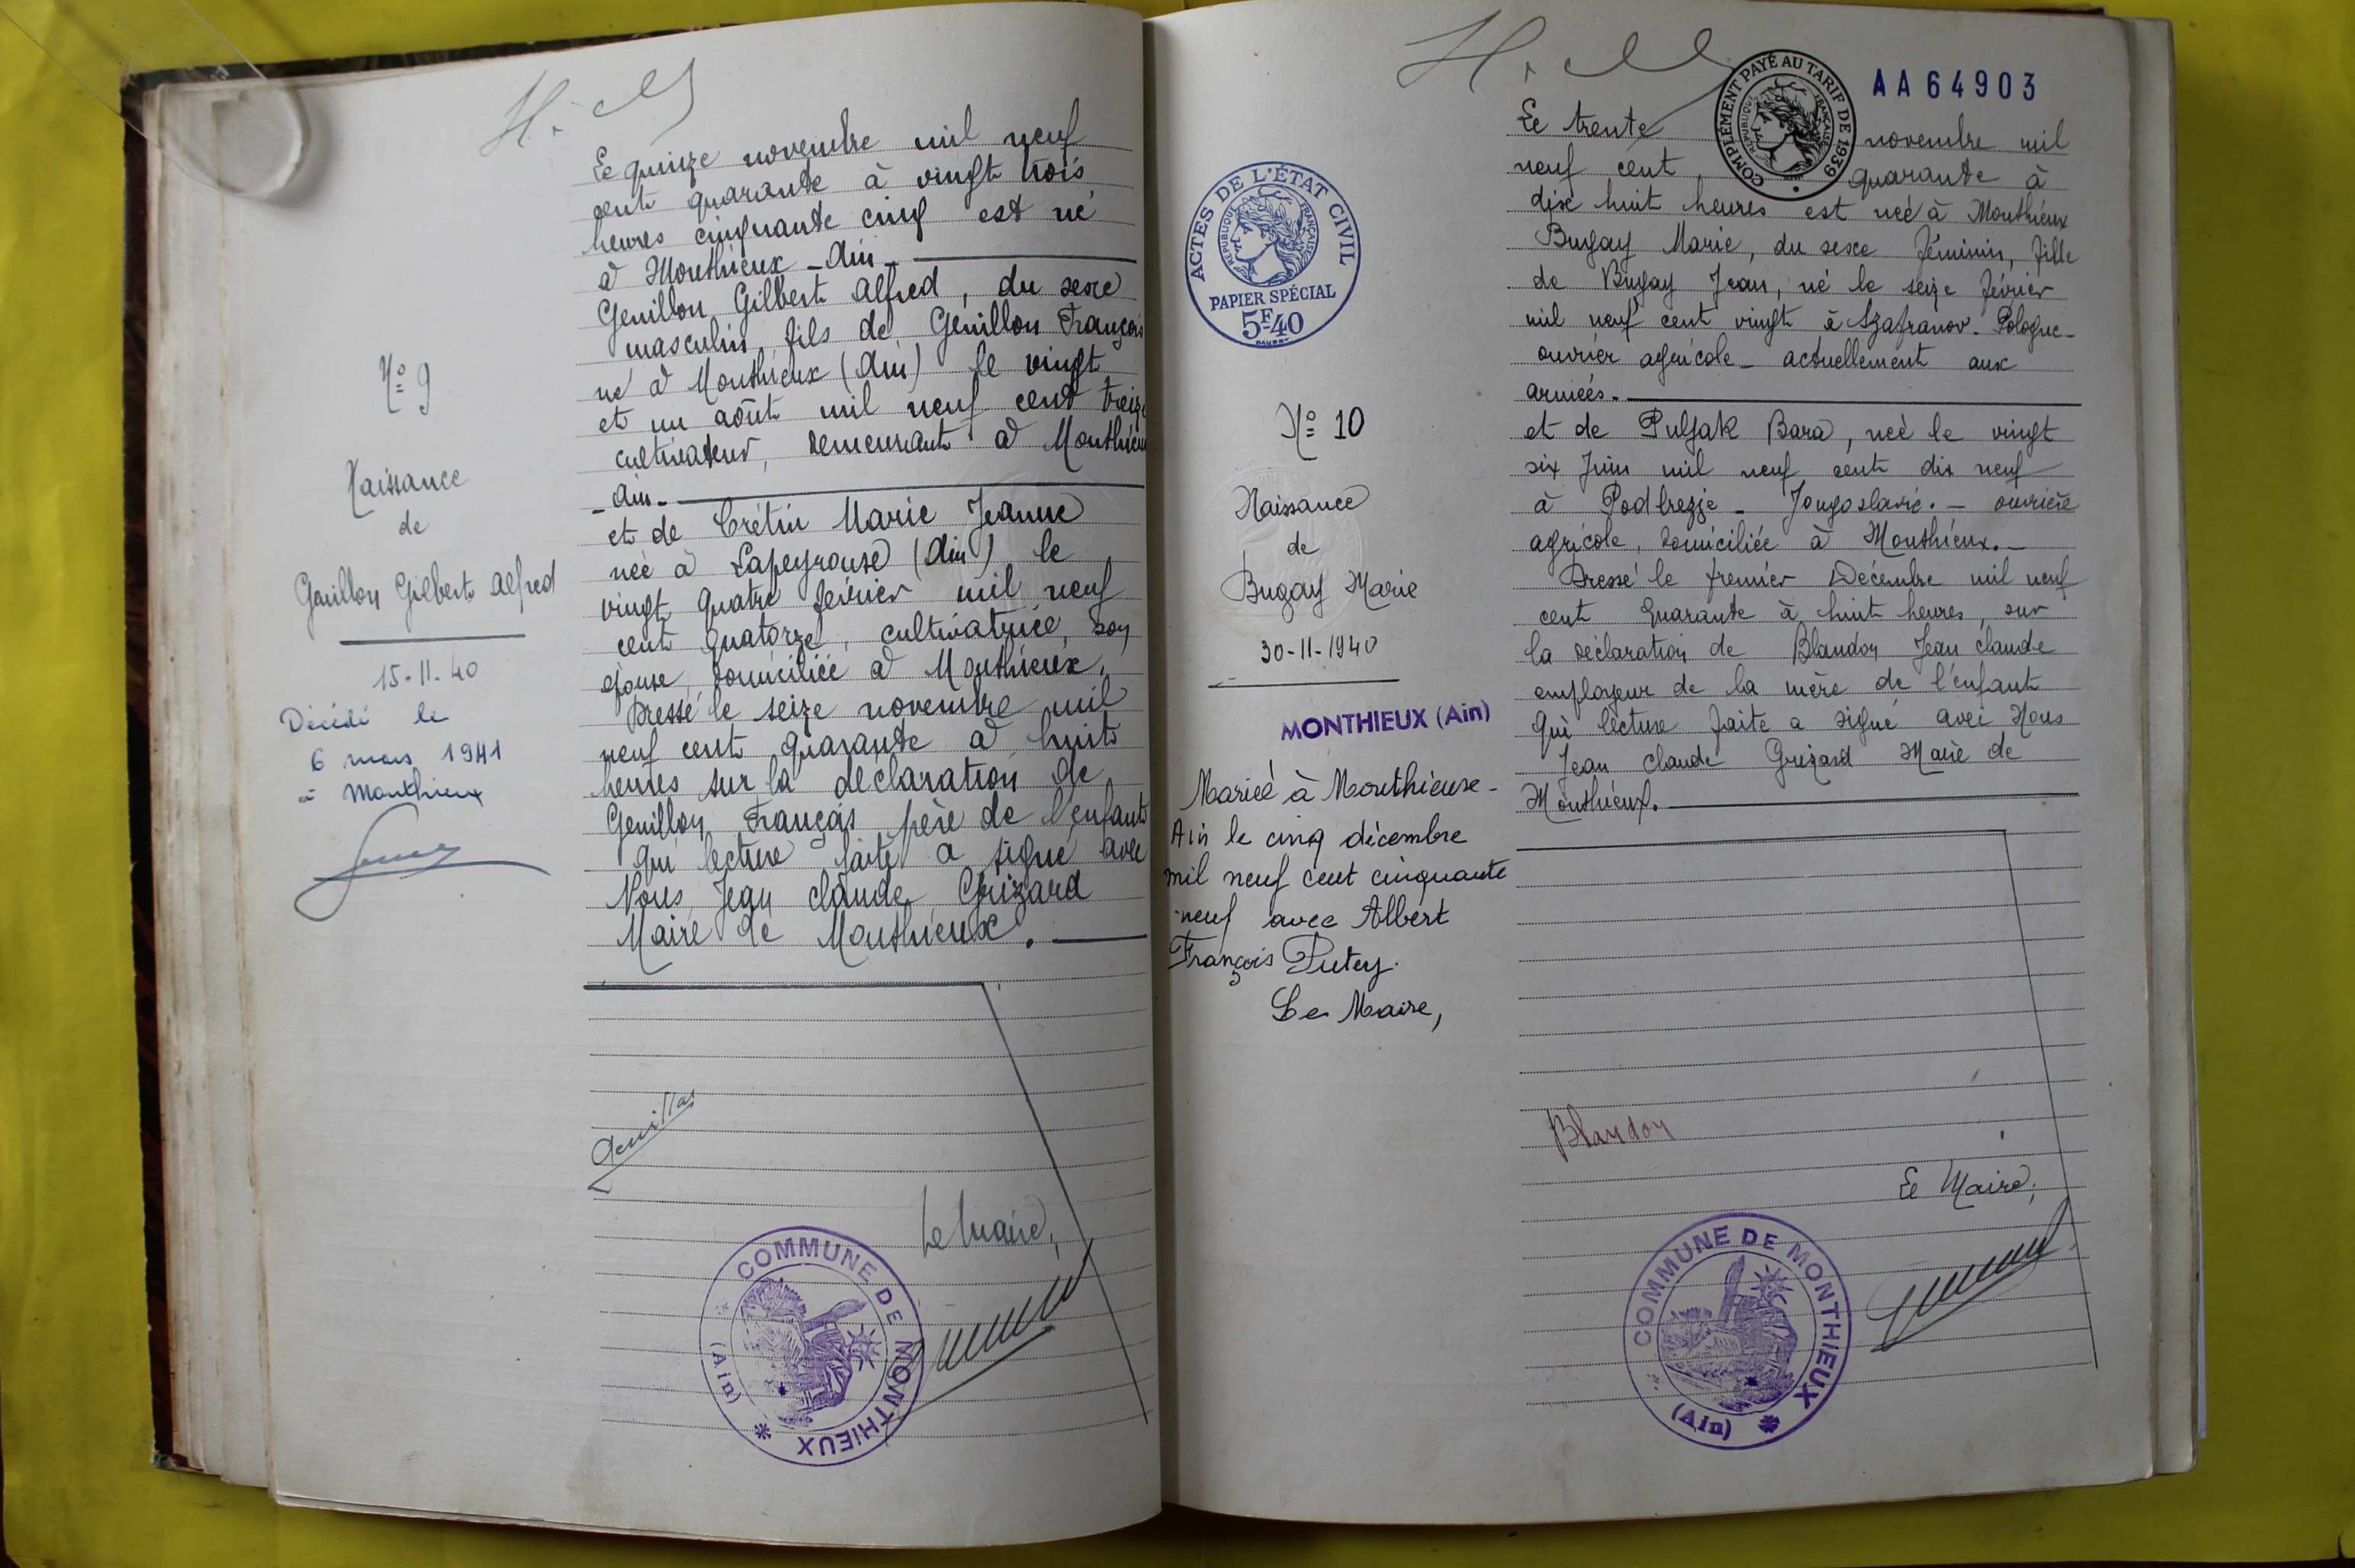 N° 9
Naissance
de
Genillon Gilbert Alfred
15-11-40
Décédé le
6 mars 1941
à Monthieux
Le quinze novembre mil neuf
cent quarante à vingt trois
heures cinquante cinq est né
à Monthieux - Ain -
Genillon Gilbert Alfred, du sexe
masculin, fils de Genillon François
né à Monthieux (Ain) le vingt
et un août mil neuf cent treize
cultivateur, demeurant à Monthieux
- Ain -
et de Crétin Marie Jeanne
née à Lapeyrouse (Ain) le
vingt quatre février mil neuf
cent quatorze, cultivatrice, son
épouse, domiciliée à Monthieux.
Dressé le seize novembre mil
neuf cent quarante à huit
heures sur la déclaration de
Genillon François père de l'enfant
qui lecture faite a signé avec
Nous Jean Claude Grizard
Maire de Monthieux.
Genillon
Le Maire,
COMMUNE DE MONTHIEUX
(Ain)
ACTES DE L'ÉTAT CIVIL
RÉPUBLIQUE FRANÇAISE
PAPIER SPÉCIAL
5F40
N° 10
Naissance
de
Bugay Marie
30-11-1940
MONTHIEUX (Ain)
Mariée à Monthieux -
Ain le cinq décembre
mil neuf cent cinquante
neuf avec Albert
François Putey.
Le Maire,
COMPLÉMENT PAYÉ AU TARIF DE 1939
RÉPUBLIQUE FRANÇAISE
AA64903
Le trente novembre mil
neuf cent quarante à
dix huit heures est née à Monthieux
Bugay Marie, du sexe féminin, fille
de Bugay Jean, né le seize février
mil neuf cent vingt à Szafranov - Pologne -
ouvrier agricole - actuellement aux
armées.
et de Puljak Bara, née le vingt
six Juin mil neuf cent dix neuf
à Podbrezje - Jougoslavie. - ouvrière
agricole, domiciliée à Monthieux. -
Dressé le premier Décembre mil neuf
cent quarante à huit heures, sur
la déclaration de Blandon Jean Claude
employeur de la mère de l'enfant
qui lecture faite a signé avec Nous
Jean Claude Grizard Maire de
Monthieux.
Blandon
Le Maire,
COMMUNE DE MONTHIEUX
(Ain)